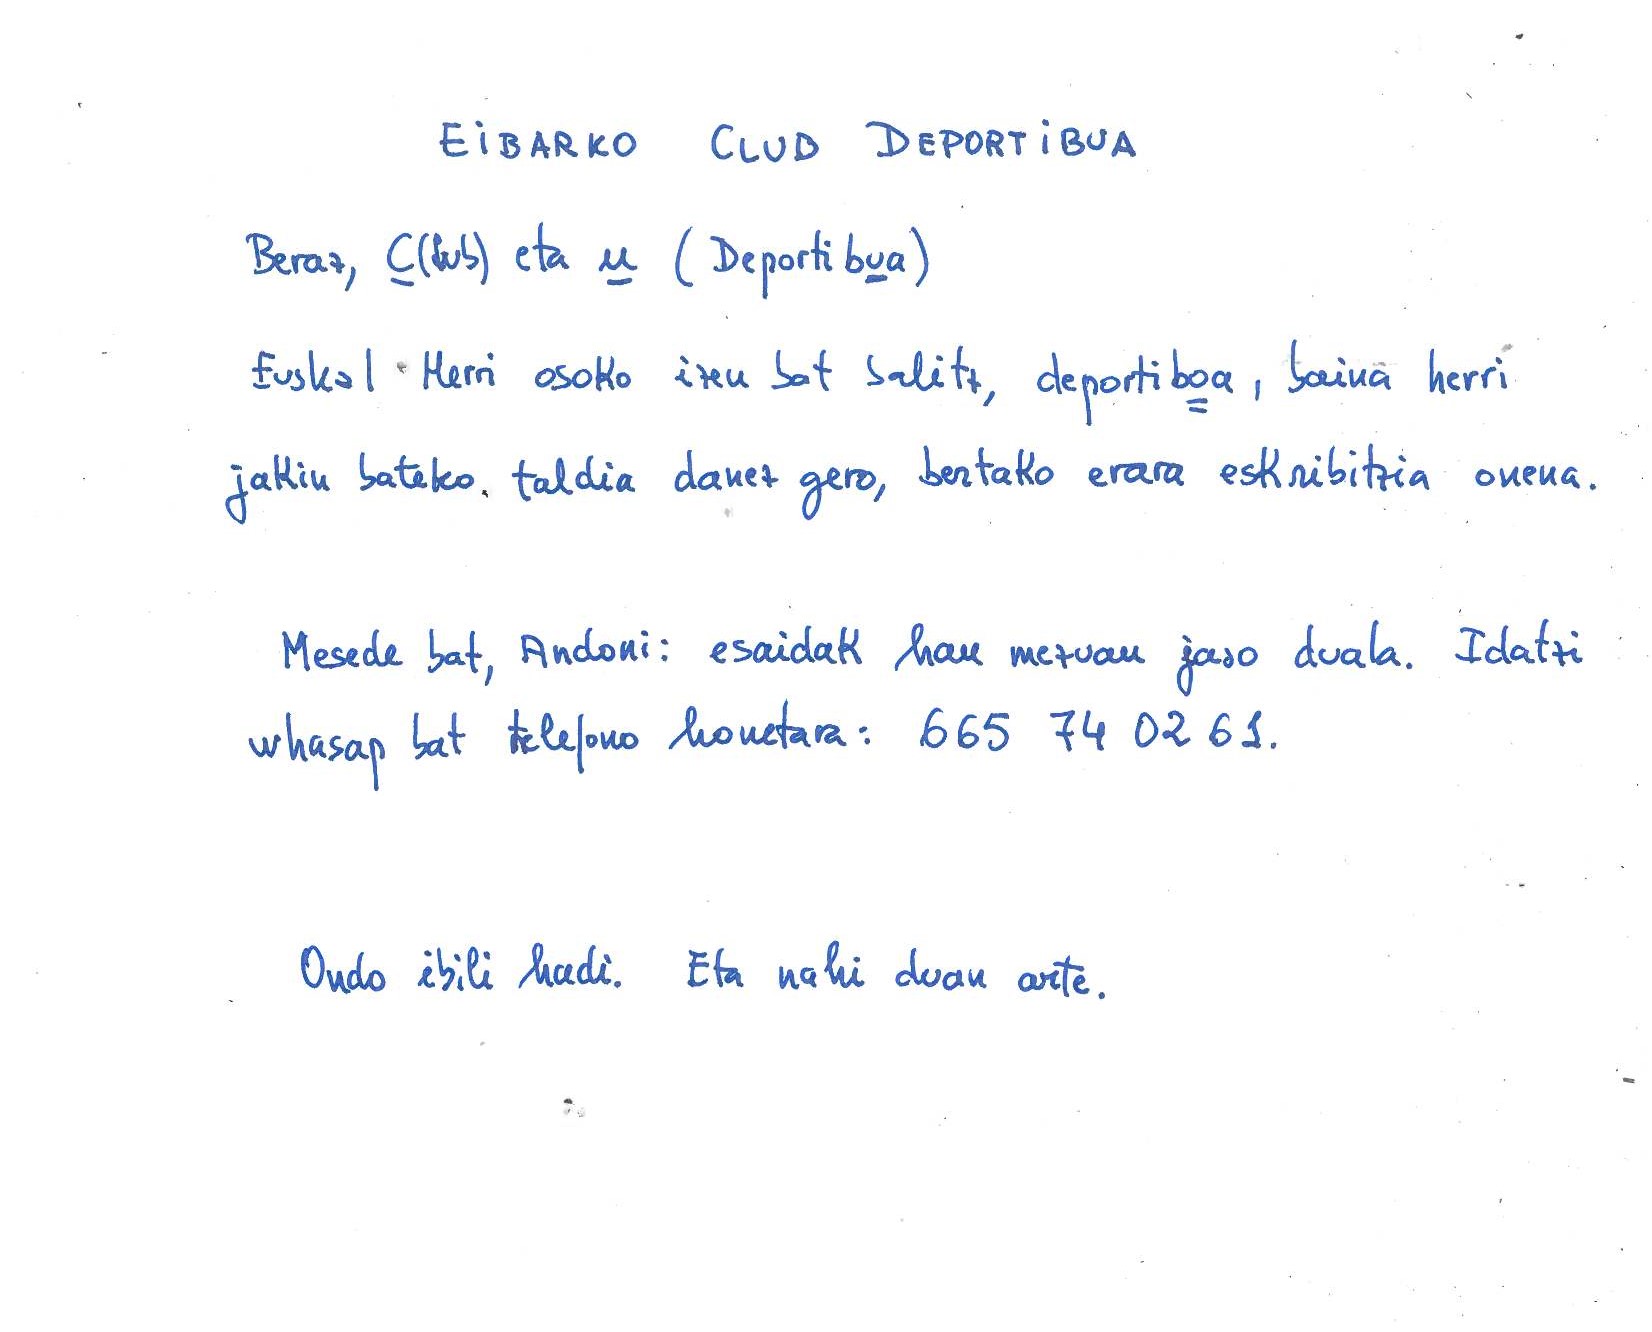 EIBARKO CLUD DEPORTIBUA
Beraz, C(lub) eta u (Deportibua)
Euskal Herri osoko izeu bat balitz, deportiboa, baina herri
jakin bateko. taldia danez gero, bertako erara eskribitzia onena.
Mesede bat, Andoni: esaidak hau mezuau jaso duala. Idatzi
whasap bat telefono honetara: 665 74 02 61.
Ondo ibili hadi. Eta nahi duan arte.